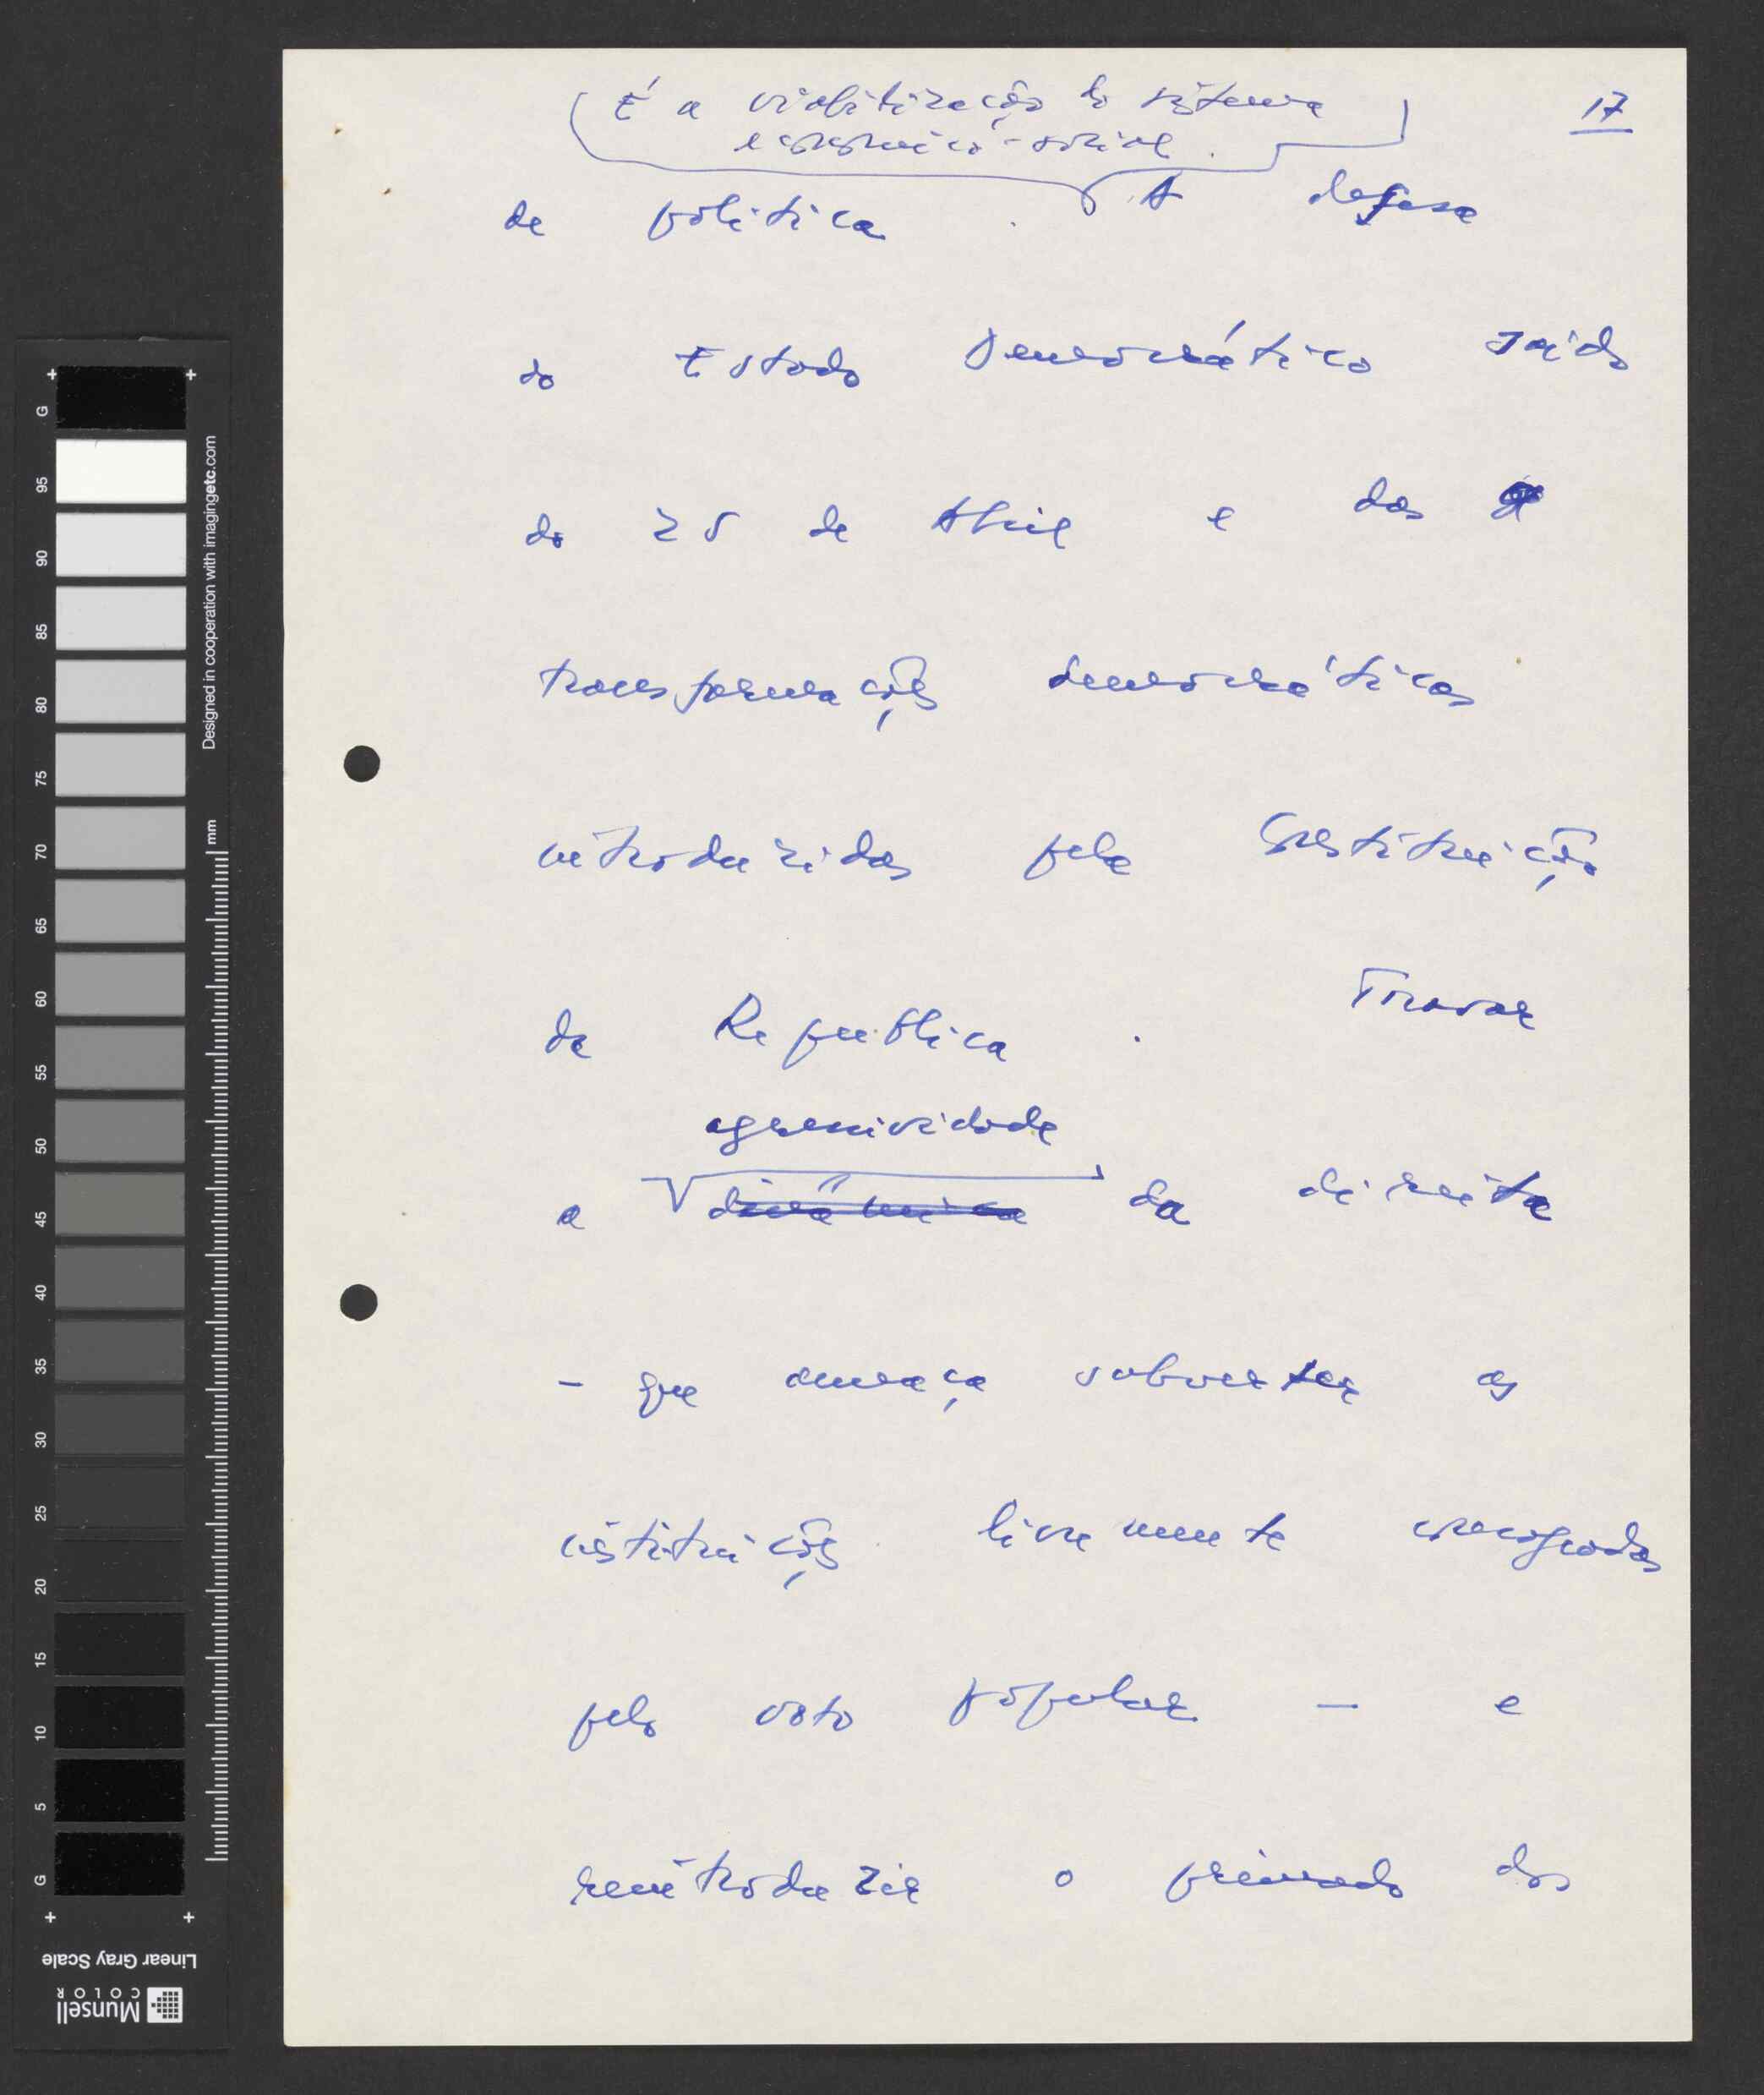 É a viabilização do sistema
económico-social.
17
de política. A defesa
do Estado Democrático saído
do 25 de Abril e das
transformações democráticas
introduzidas pela Constituição
da República. Travar
agressividade
a dinâmica da direita
- que ameaça subverter as
instituições livremente consagradas
pelo voto popular — e
reintroduzir o primado dos
G
95
90
85
80
75
70
65
60
55
50
45
40
35
30
25
20
15
10
5
G
Designed in cooperation with imagingetc.com
mm
Linear Gray Scale
Munsell
COLOR